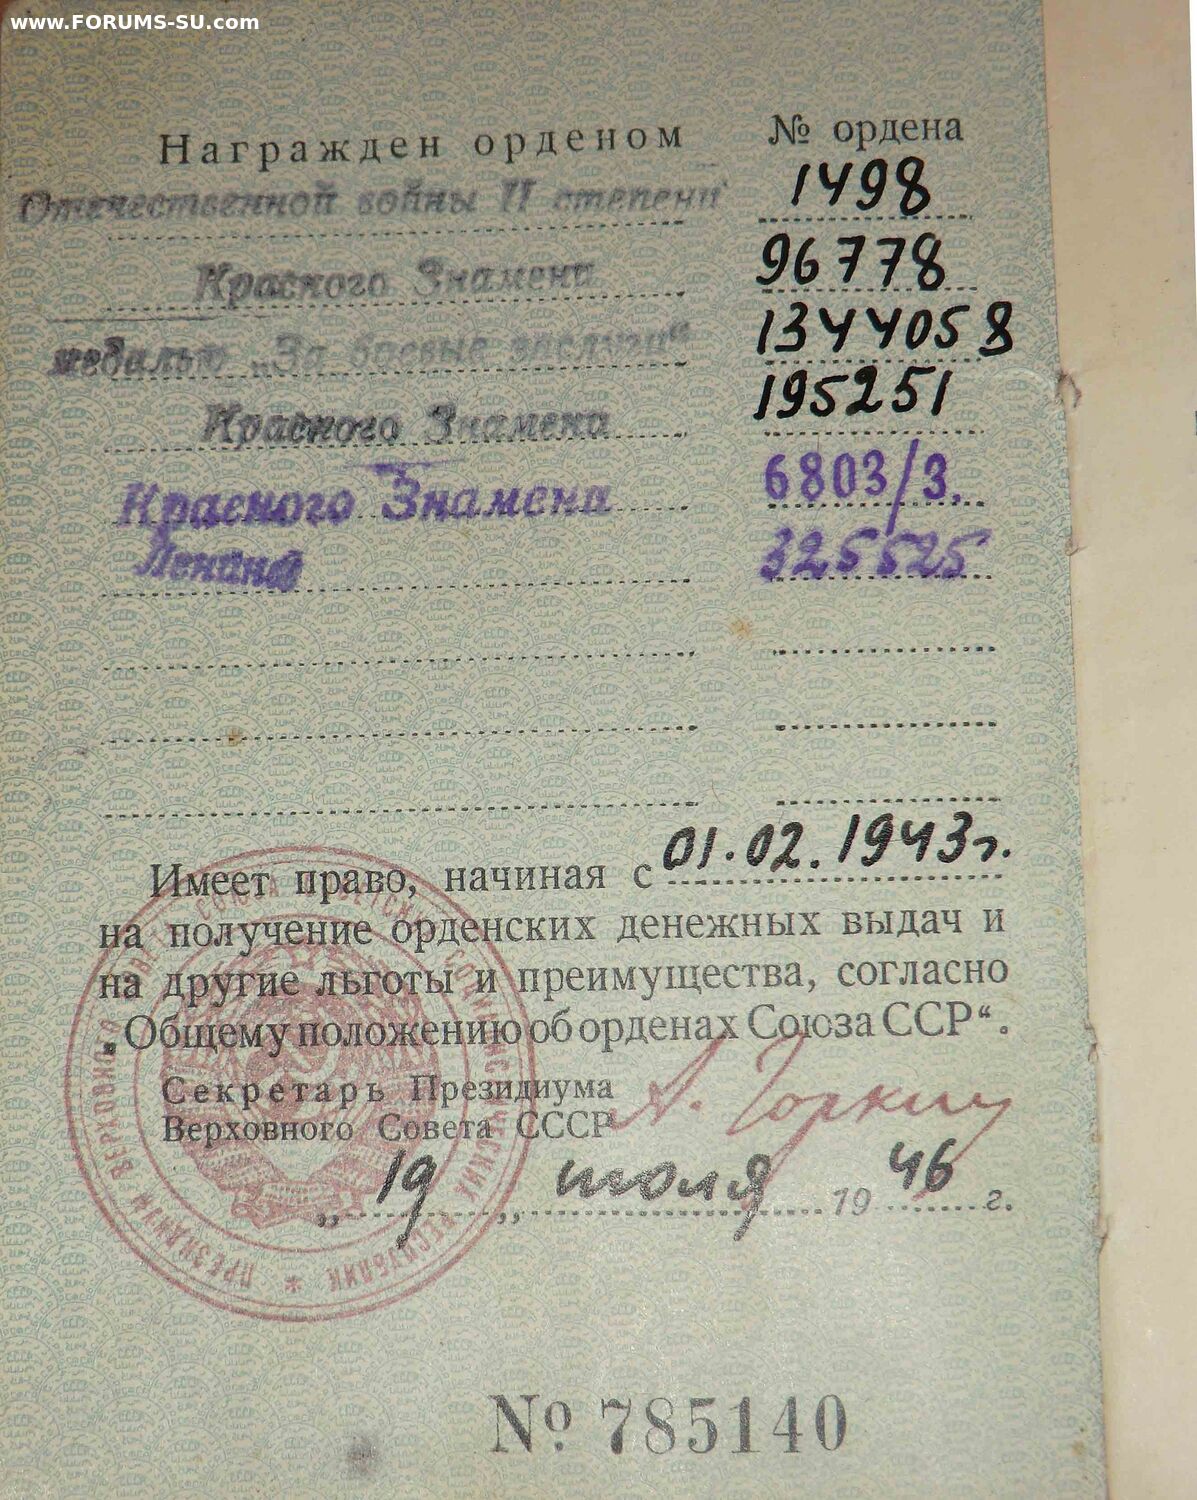 www.FORUMS-SU.com
Награжден орденом № ордена
Отечественной войны II степени 1498
Красного Знамени 96778
медалью „За боевые заслуги“ 1344058
Красного Знамени 195251
Красного Знамени 6803/3.
Ленина 325525
Имеет право, начиная с 01.02.1943г.
на получение орденских денежных выдач и
на другие льготы и преимущества, согласно
„Общему положению об орденах Союза ССР“.
Секретарь Президиума
Верховного Совета СССР А. Горкин
„19„ июля 1946 г.
ПРЕЗИДИУМ ВЕРХОВНОГО СОЮЗА РЕСПУБЛИК
№ 785140